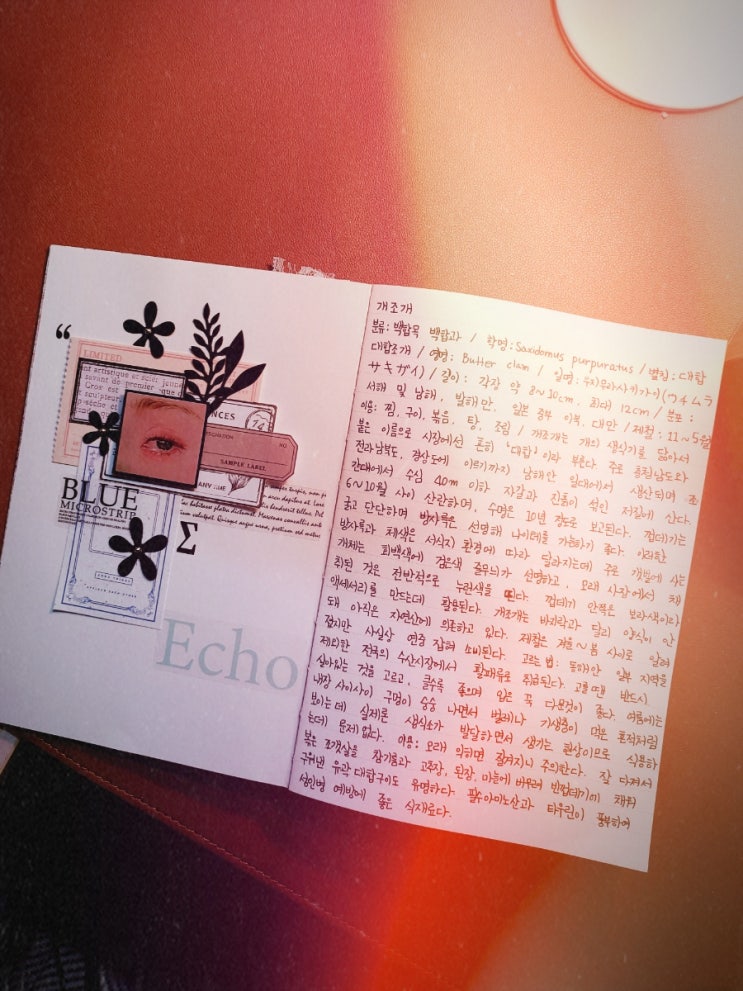 “
LIMITED
ent artistique et scier jeunes
savant de prendre
Gros est
sèche et
NCES
NO
SAMPLE LABEL
ANY
BLUE
MICROSTRIP
Σ
ac habitasse platea dictumst. Maecenas convallis ante
Echo
개조개
분류: 백합목 백합과 / 학명: Saxidomus purpuratus / 별칭: 대합
대합조개 / 영명: Butter clam / 일명: 우치무라사키가이(ウチムラ
サキガイ) / 길이: 각장 약 8~10cm, 최대 12cm / 분포:
서해 및 남해, 발해만, 일본 중부 이북, 대만 / 제철: 11~5월
이용: 찜, 구이, 볶음, 탕, 조림 / 개조개는 개의 생식기를 닮아서
붙은 이름으로 시장에선 흔히 '대합'이라 부른다. 주로 충청남도와
전라남북도, 경상도에 이르기까지 남해안 일대에서 생산되며 조
간대에서 수심 40m 이하 자갈과 진흙이 섞인 저질에 산다.
6~10월 사이 산란하며, 수명은 10년 정도로 보고된다. 껍데기는
굵고 단단하며 방사륵은 선명해 나이테를 가늠하기 좋다. 이러한
방사륵과 채색은 서식지 환경에 따라 달라지는데 주로 갯벌에 사는
개체는 회백색에 검은색 줄무늬가 선명하고, 모래 사장에서 채
취된 것은 전반적으로 누런색을 띤다. 껍데기 안쪽은 보라색이라
액세서리를 만드는데 활용된다. 개조개는 바지락과 달리 양식이 안
돼 아직은 자연산에 의존하고 있다. 제철은 겨울~봄 사이로 알려
졌지만 사실상 연중 잡혀 소비된다. 고르는 법: 동해안 일부 지역을
제외한 전국의 수산시장에서 활패류로 취급된다. 고를 땐 반드시
살아있는 것을 고르고, 클수록 좋으며 입은 꼭 다문것이 좋다. 여름에는
내장 사이사이 구멍이 숭숭 나면서 벌레나 기생충이 먹은 흔적처럼
보이는데 실제론 생식소가 발달하면서 생기는 현상이므로 식용하
는데 문제없다. 이용: 오래 익히면 질겨지니 주의한다. 잘 다져서
볶은 조갯살을 참기름과 고추장, 된장, 마늘에 버무려 빈껍데기에 채워
구워낸 유곽 대합구이도 유명하다. 필수아미노산과 타우린이 풍부하여
성인병 예방에 좋은 식재료다.